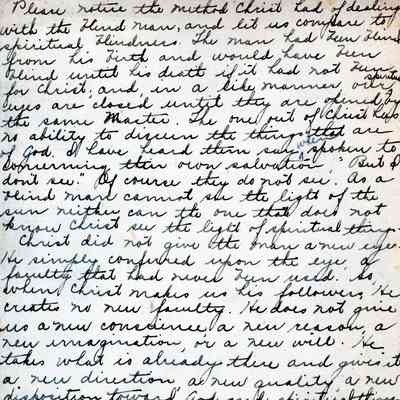 Please notice the method Christ had of dealing
with the blind man, and let us compare to
spiritual blindness. The man had been blind
from his birth and would have been
blind until his death if it had not been
for Christ; and, in a like manner our spiritual
eyes are closed until they are opened by
the same Master. The one out of Christ has
no ability to discern the things that are
of God. I have heard them say when spoken to
concerning their own salvation, "But I
don't see." Of course they do not see. As a
blind man cannot see the light of the
sun neither can the one that does not
know Christ see the light of spiritual things.
Christ did not give the man a new eye.
He simply conferred upon the eye, a
faculty that had never been used. So,
when Christ makes us his followers, He
creates no new faculty. He does not give
us a new conscience, a new reason, a
new imagination, or a new will. He
takes what is already there and gives it
a new direction, a new quality, a new
disposition toward God and spiritual things